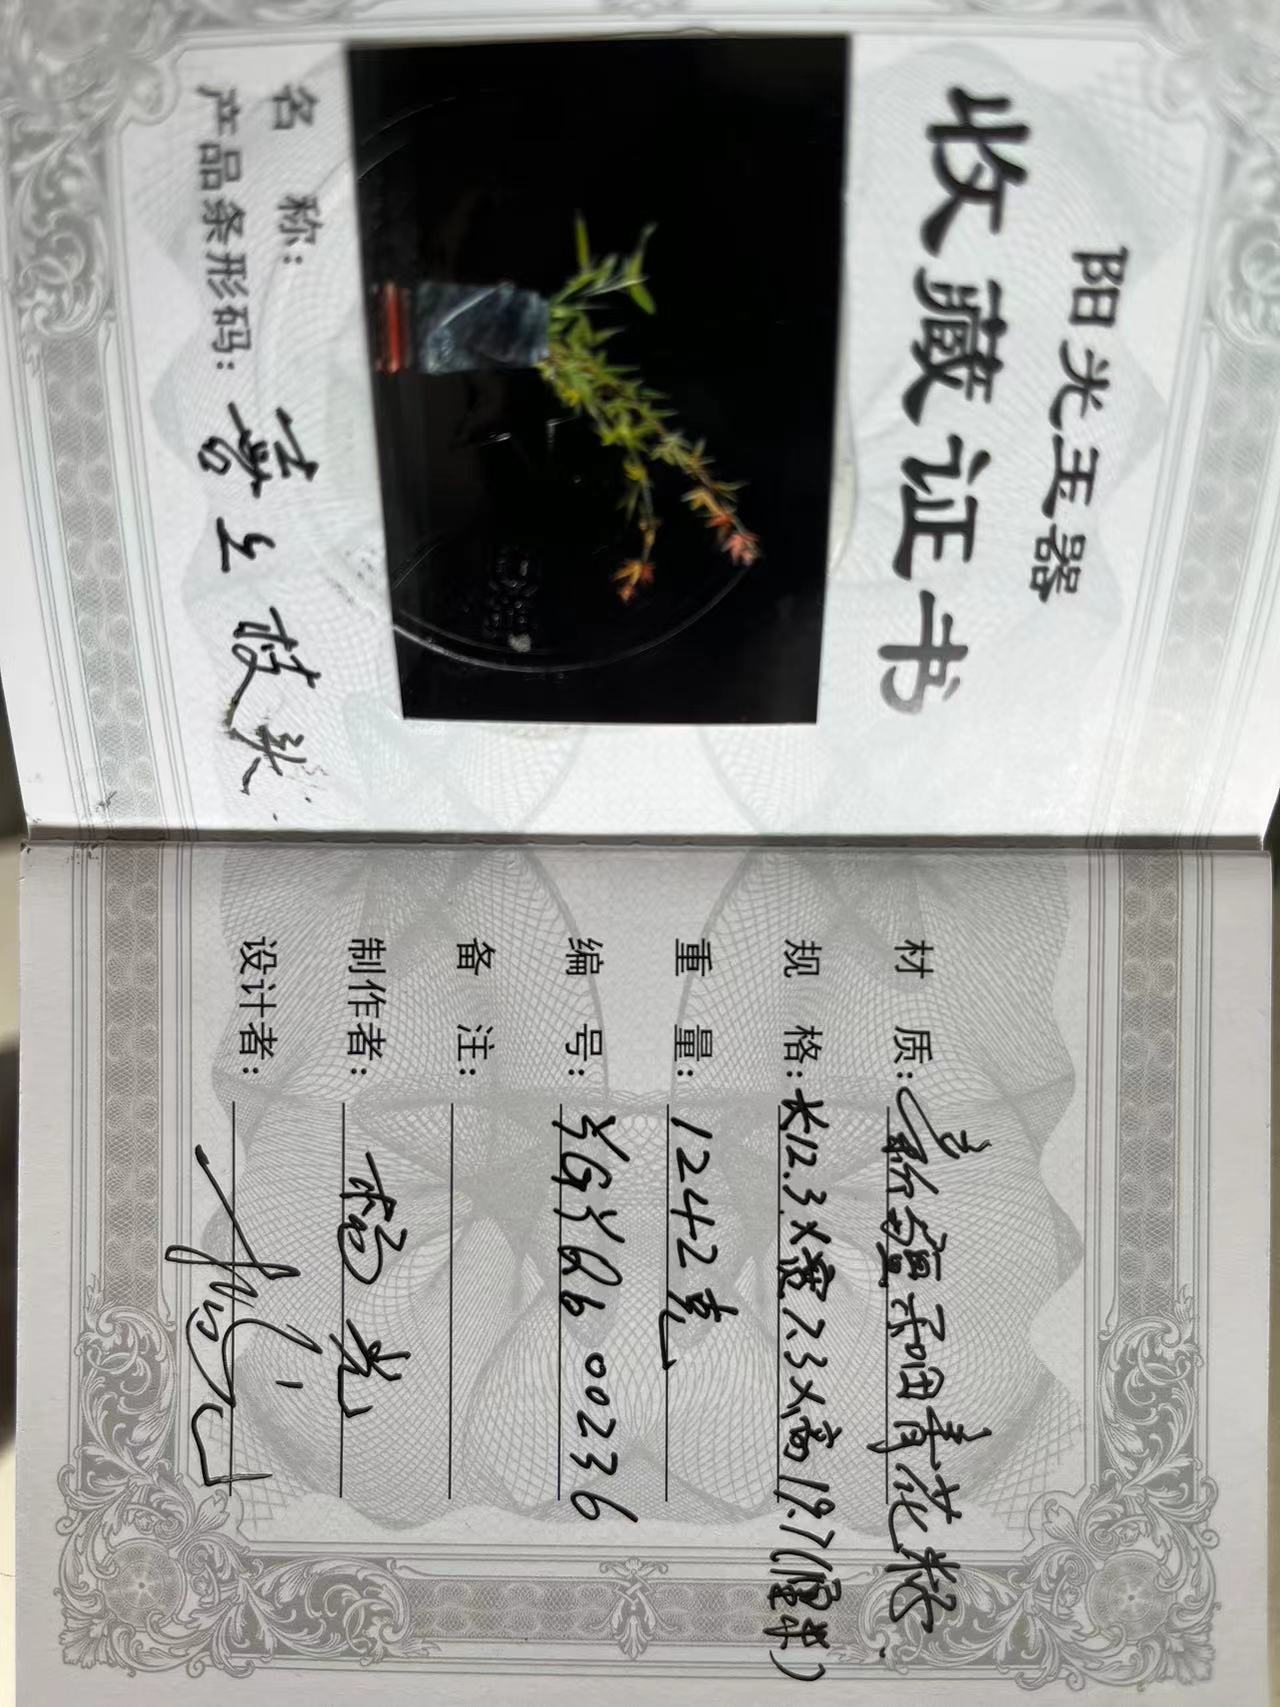 阳光玉器
收藏证书
名 称: 喜上枝头
产品条形码:
材 质: 新疆和田青花籽
规 格: 长12.3×宽7.3×高19.7(厘米)
重 量: 1242克
编 号: 00236
备 注:
制作者: 杨光
设计者: